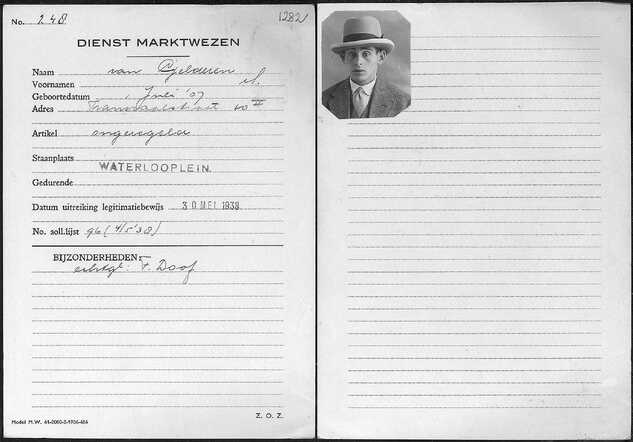 No. 248
1282
DIENST MARKTWEZEN
Naam van Gelderen
Voornamen M.
Geboortedatum 1 Juli '07
Adres Transvaalstraat 60 III
Artikel ongeregeld
Staanplaats
WATERLOOPLEIN.
Gedurende
Datum uitreiking legitimatiebewijs 30 MEI 1938
No. soll.lijst 96 (4/5 '38)
BIJZONDERHEDEN:
echtgt: F. Doof
Model M.W. 61-2000-5-1936-486
Z. O. Z.